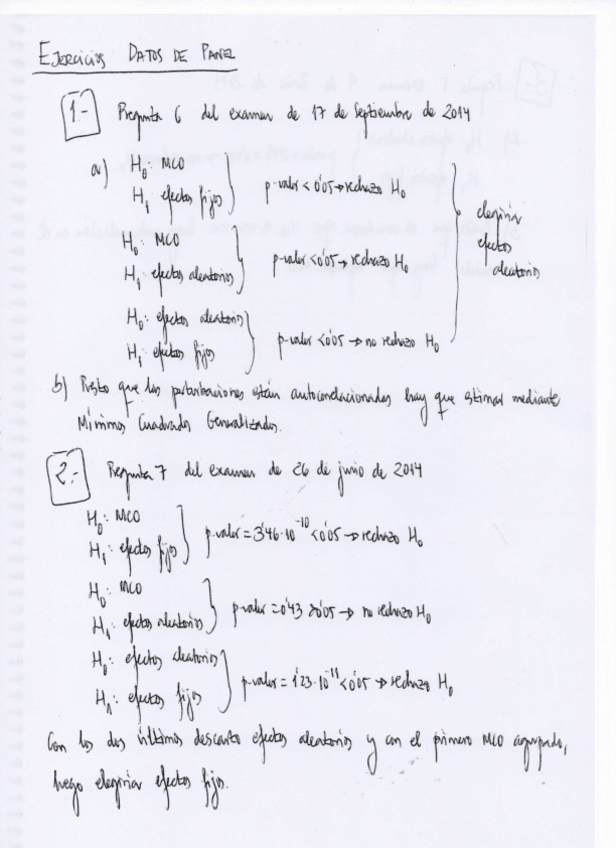 EJERCICIOS DATOS DE PANEL
1.- Pregunta 6 del examen de 17 de Septiembre de 2014
a) H0: MCO
H1: efectos fijos
p-valor < 0'05 → rechazo H0
H0: MCO
H1: efectos aleatorios
p-valor < 0'05 → rechazo H0
H0: efectos aleatorios
H1: efectos fijos
p-valor < 0'05 → no rechazo H0
elegiría
efectos
aleatorios
b) Puesto que las perturbaciones están autocorrelacionadas hay que estimar mediante
Mínimos Cuadrados Generalizados.
2.- Pregunta 7 del examen de 26 de junio de 2014
H0: MCO
H1: efectos fijos
p-valor = 3'46·10^-10 < 0'05 → rechazo H0
H0: MCO
H1: efectos aleatorios
p-valor = 0'43 > 0'05 → no rechazo H0
H0: efectos aleatorios
H1: efectos fijos
p-valor = 1'23·10^-11 < 0'05 → rechazo H0
Con los dos últimos descarto efectos aleatorios y con el primero MCO agrupado,
luego elegiría efectos fijos.